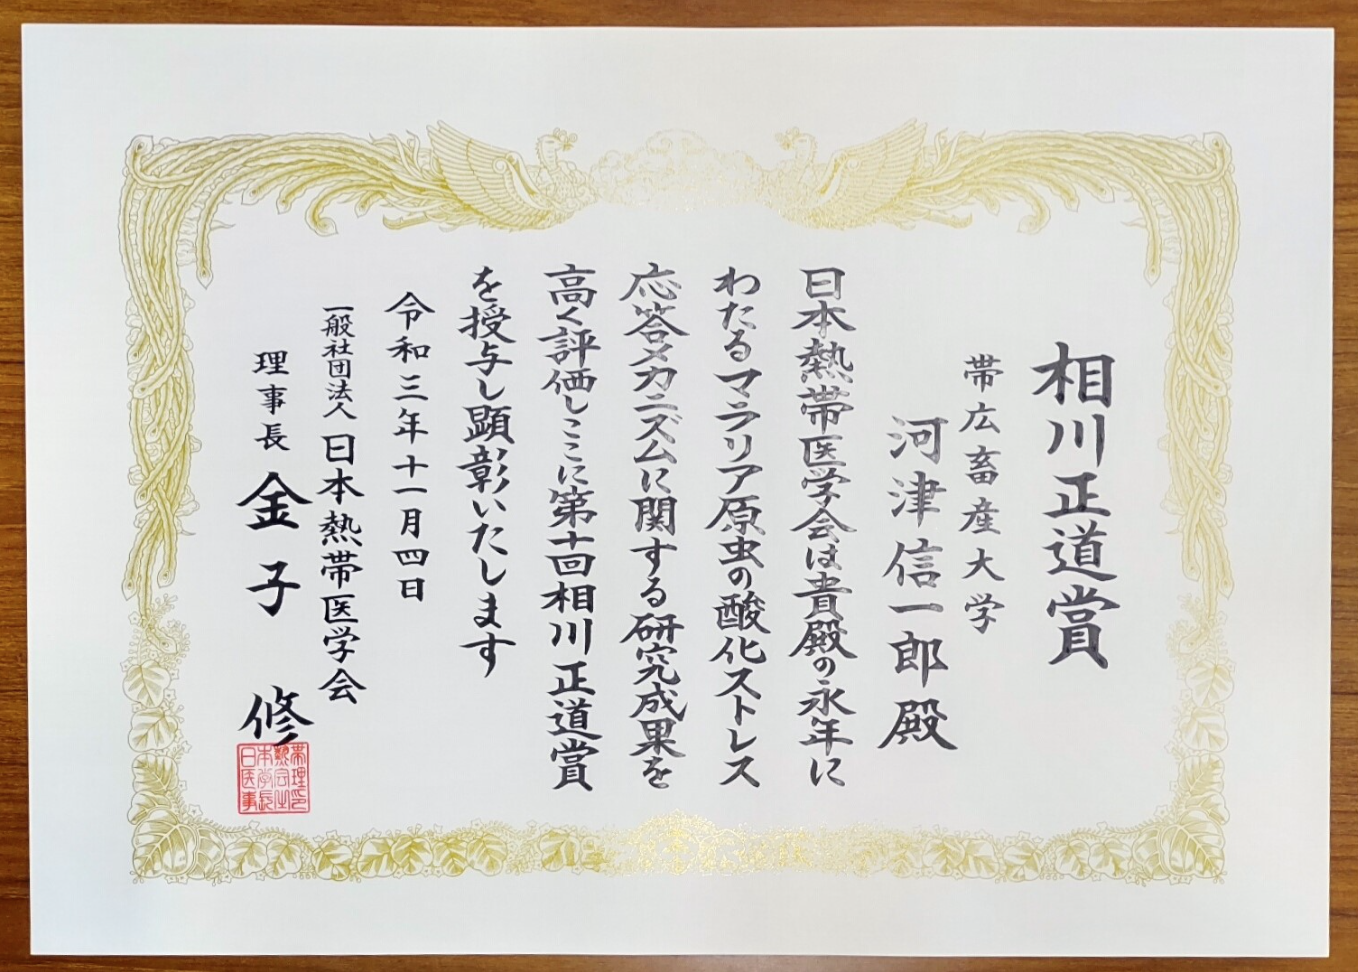 相川正道賞
帯広畜産大学
河津信一郎殿
日本熱帯医学会は貴殿の永年に
わたるマラリア原虫の酸化ストレス
応答メカニズムに関する研究成果を
高く評価しここに第十回相川正道賞
を授与し顕彰いたします
令和三年十一月四日
一般社団法人日本熱帯医学会
理事長 金子 修